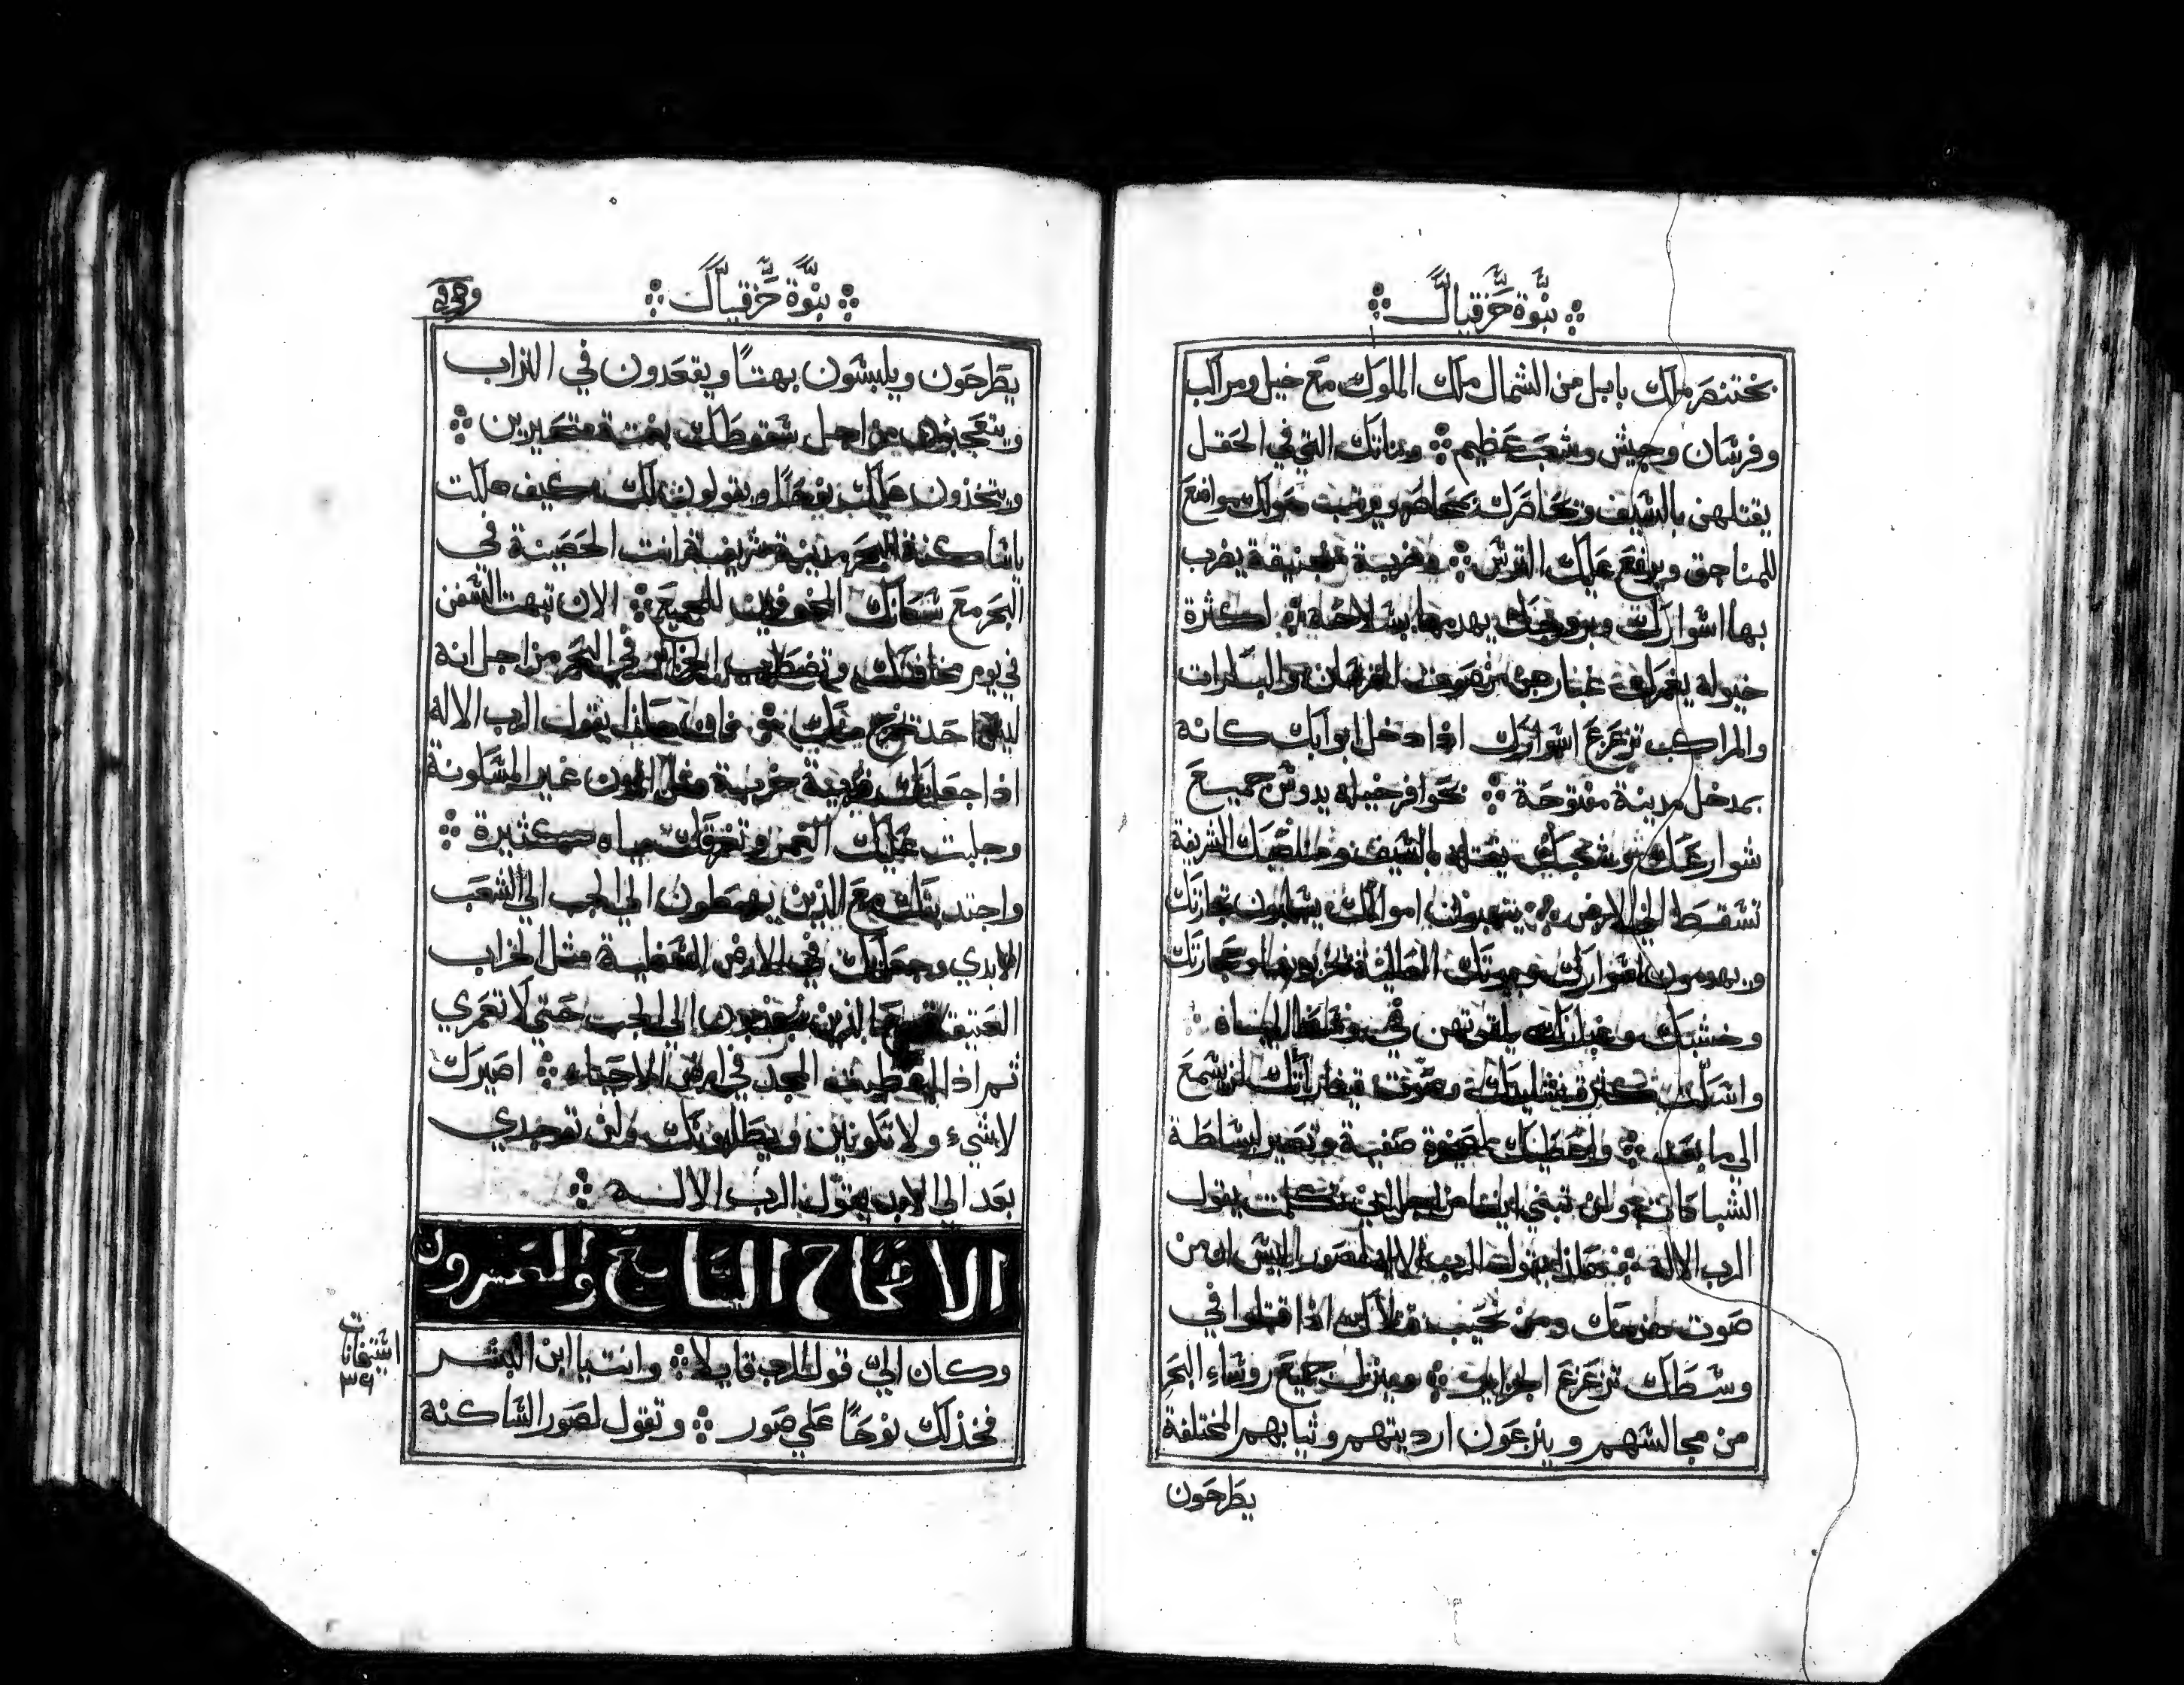 نبوة حزقيال
بختنصر ملك بابل من الشمال ملك الملوك مع خيل ومراكب
وفرسان وجيش وشعب عظيم ۞ وبناتك التي في الحقل
يقتلهن بالسيف ويحاصرك محاصره ويرتب حولك مواضع
للمناجق ويرفع عليك الترس ۞ وحربة منجنيقة يضرب
بها اسوارك وبروجك يهدمها بسلاحه ۞ لكثرة
خيوله يغمرك غبارهن من صوت الفرسان والبكرات
والمراكب تزعزع اسوارك اذا دخل ابوابك كانه
بمدخل مدينة مفتوحة ۞ بحوافر خيله يدوس جميع
شوارعك شعبك يقتله بالسيف الشريفة
تسقط الي الارض ۞ ينتهبون اموالك يسلبون تجارتك
ويهدمون اسوارك وبيوتك وحجارتك
وخشبك وغبارك يلقونهن في وسط المياه
واسكت كثرة وصوت قيثاراتك لن يسمع
الي ما بعد ۞ واعطيك لصخرة صفية وتصير لبساطة
الشباكات ولن تبتني ايضا من اجل اني تكلمت يقول
الرب الاله ۞ هكذا يقول الرب الاله لصور اليس ان من
صوت ومن نحيب قتلاك اذا قتلوا في
وسطك تزعزع الجزاير ۞ وينزل جميع روساء البحر
من مجالسهم وينزعون ارديتهم وثيابهم المختلفة
يطرحون
نبوة حزقيال
يطرحون ويلبسون بهتا ويقعدون في التراب
ويتعجبون من اجل سقوطك بغتة متحيرين ۞
ويتخذون عليك نوحا ويقولون لك كيف هلكت
ياساكنة البحر مدينة شريفة انت الحصينة في
البحر مع سكانك للجميع ۞ الان تبهت السفن
في يوم مخافتك وتضطرب الجزاير في البحر من اجل انه
ليس احد تخرج منك يقول الرب الاله
اذا جعلتك مدينة خربة مثل المدن غير المسكونة
وجلبت عليك الغمر وتغرقك مياه كثيرة ۞
واجتذبتك مع الذين يهبطون الي الجب الي الشعب
الابدي وجعلتك في الارض السفلية مثل الخراب
العتيق الي الجب حتي لا تعمري
ثم اذا اعطيت المجد في ارض الاحياء ۞ اصيرك
لا شيء ولا تكونين ويطلبونك ولن توجدي
بعد الي الابد يقول الرب الاله ۞
الافتتاح السابع والعشرون
وكان الي قول الرب قايلا ۞ وانت يا ابن البشر
فخذ لك نوحا علي صور ۞ وتقول لصور الساكنة